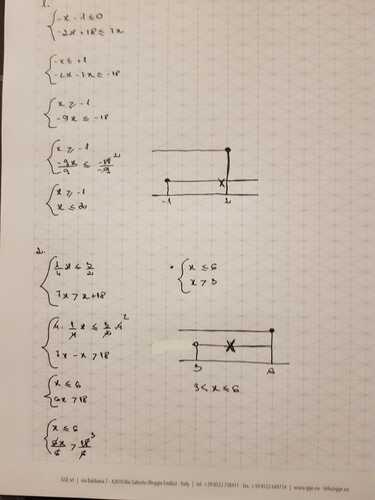 1.
{ -x - 1 ≤ 0
-2x + 18 ≤ 7x
{ -x ≤ +1
-2x - 7x ≤ -18
{ x ≥ -1
-9x ≤ -18
{ x ≥ -1
-9x/9 ≤ -18/-9 2
{ x ≥ -1
x ≤ 2
-1 2
2.
{ 1/4 x ≤ 3/2
7x > x + 18
{ 4 · 1/4 x ≤ 3/2 · 4 2
7x - x > 18
{ x ≤ 6
6x > 18
{ x ≤ 6
6x/6 > 18/6 3
• { x ≤ 6
x > 3
3 6
3 < x ≤ 6